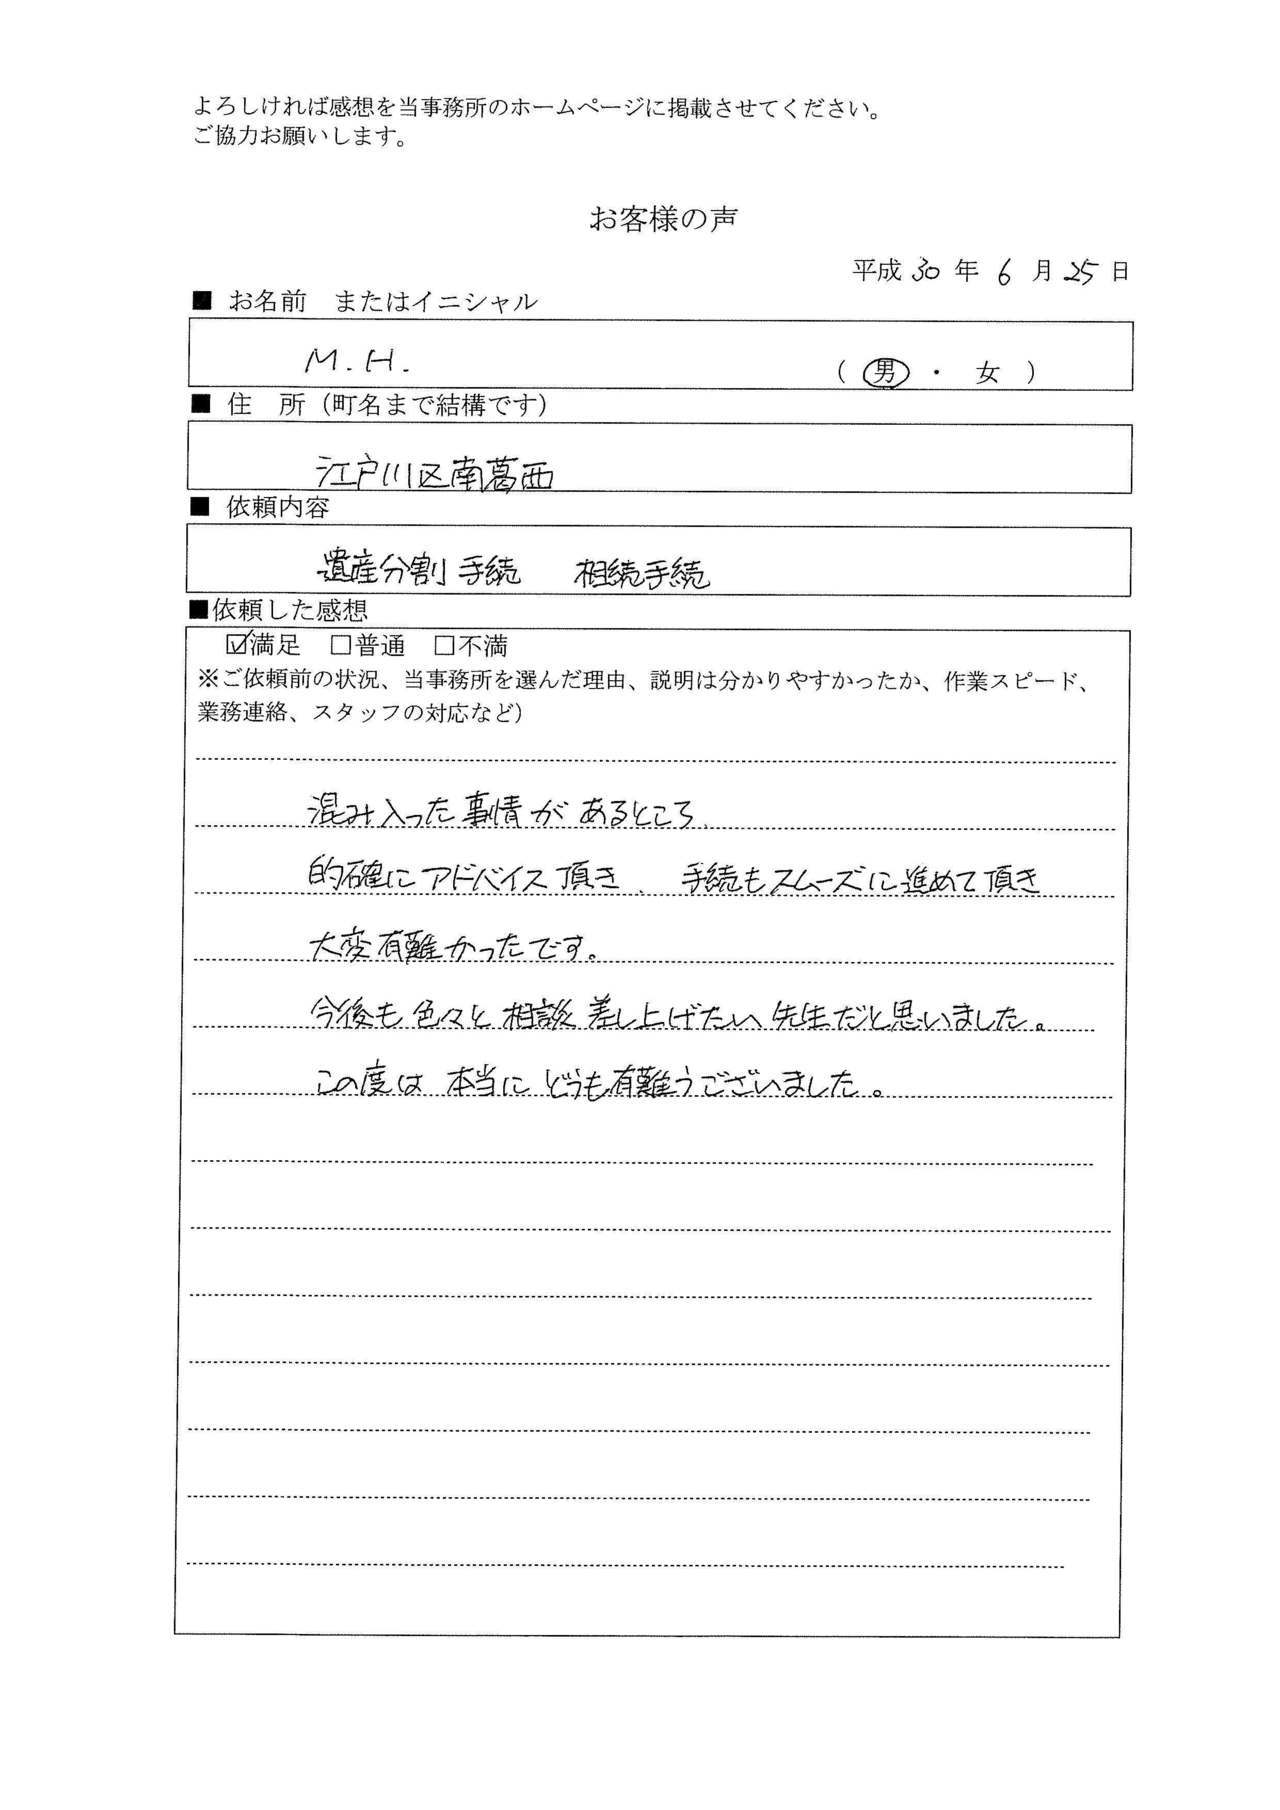 よろしければ感想を当事務所のホームページに掲載させてください。
ご協力お願いします。
お客様の声
平成 30 年 6 月 25 日
■ お名前　またはイニシャル
M.H.　（ 男 ・ 女 ）
■ 住　所（町名まで結構です）
江戸川区南葛西
■ 依頼内容
遺産分割手続　相続手続
■依頼した感想
☑満足　□普通　□不満
※ご依頼前の状況、当事務所を選んだ理由、説明は分かりやすかったか、作業スピード、
業務連絡、スタッフの対応など）
混み入った事情があるところ、
的確にアドバイス頂き、手続もスムーズに進めて頂き
大変有難かったです。
今後も色々と相談差し上げたい先生だと思いました。
この度は本当にどうも有難うございました。